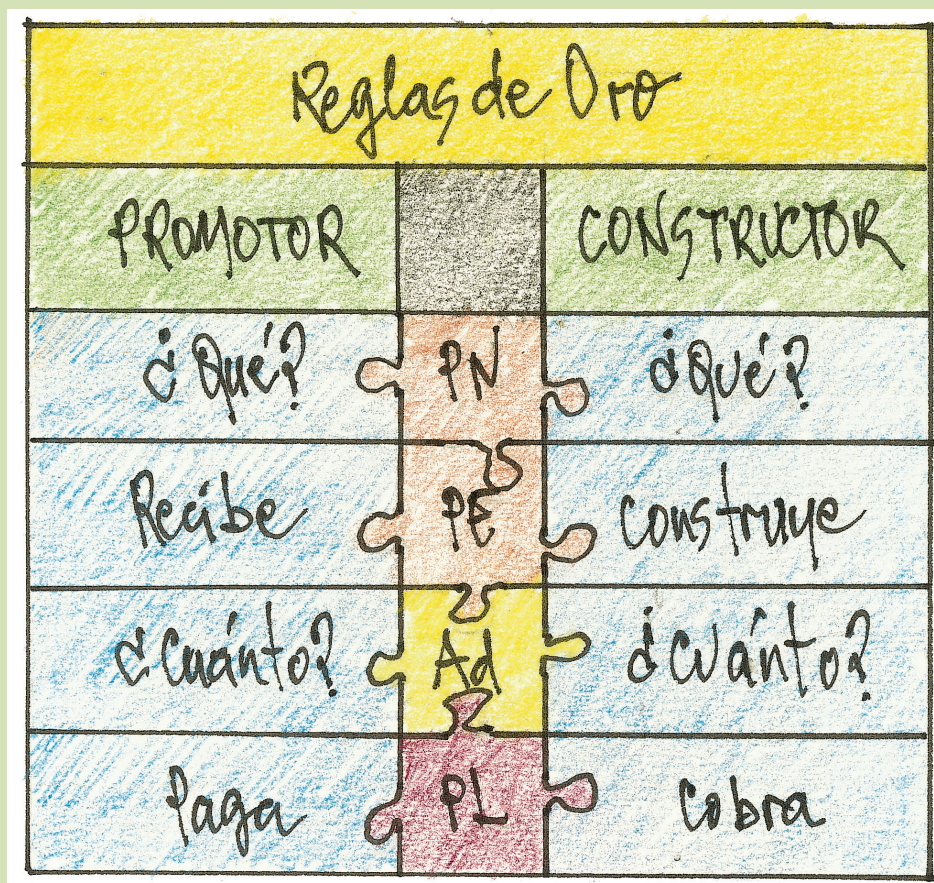 Reglas de Oro
PROMOTOR CONSTRUCTOR
¿Qué? PN ¿Qué?
Recibe PE Construye
¿Cuánto? Ad ¿Cuánto?
Paga PL Cobra